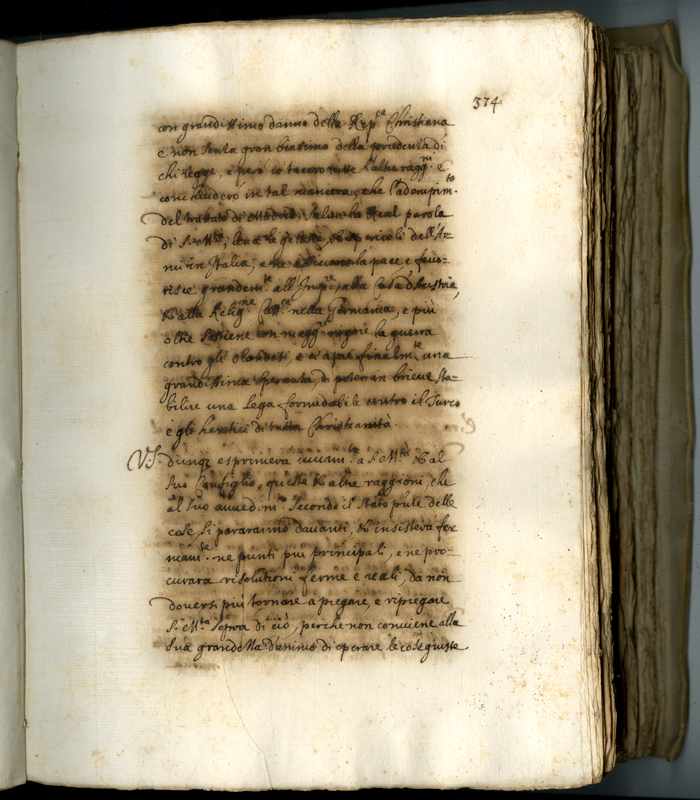 374
con grandissimo danno della Rep.ca Christiana
e non senza gran biasimo della prudenza di
chi regge, e però io tacerò tutte l'altre ragg.ni e
conchiuderò in tal maniera, che l'adempim.to
del trattato di Madrid, salva la Real parola
di S. M.tà, leva le gelosie, & i pericoli dell'Ar-
mi in Italia, e la pace, e favo-
risce grandem.te all'Imp.re, alla Casa d'Austria,
& alla Relig.ne Catt.ca nella Germania, e più
oltre sostiene con magg.r vigore la guerra
contro gli Olandesi, e si apre finalm.te una
grandissima speranza, di poter in brieve sta-
bilire una Lega formidabile contro il Turco
e gli heretici di tutta Christianità.
V.S. dunq; esprimerà vivam.te a S. M.tà & al
suo Consiglio, queste & altre raggioni, che
al suo avvedim.to secondo il stato p̃nte delle
cose, si pararanno davanti, & insisterà for
ne punti più principali, e ne pro-
curarà risolutioni ferme e reali, da non
doversi più tornare a piegare, e ripiegare
S. M.tà sopra di ciò, perche non conviene alla
sua grandezza d'animo di operare le cose giuste